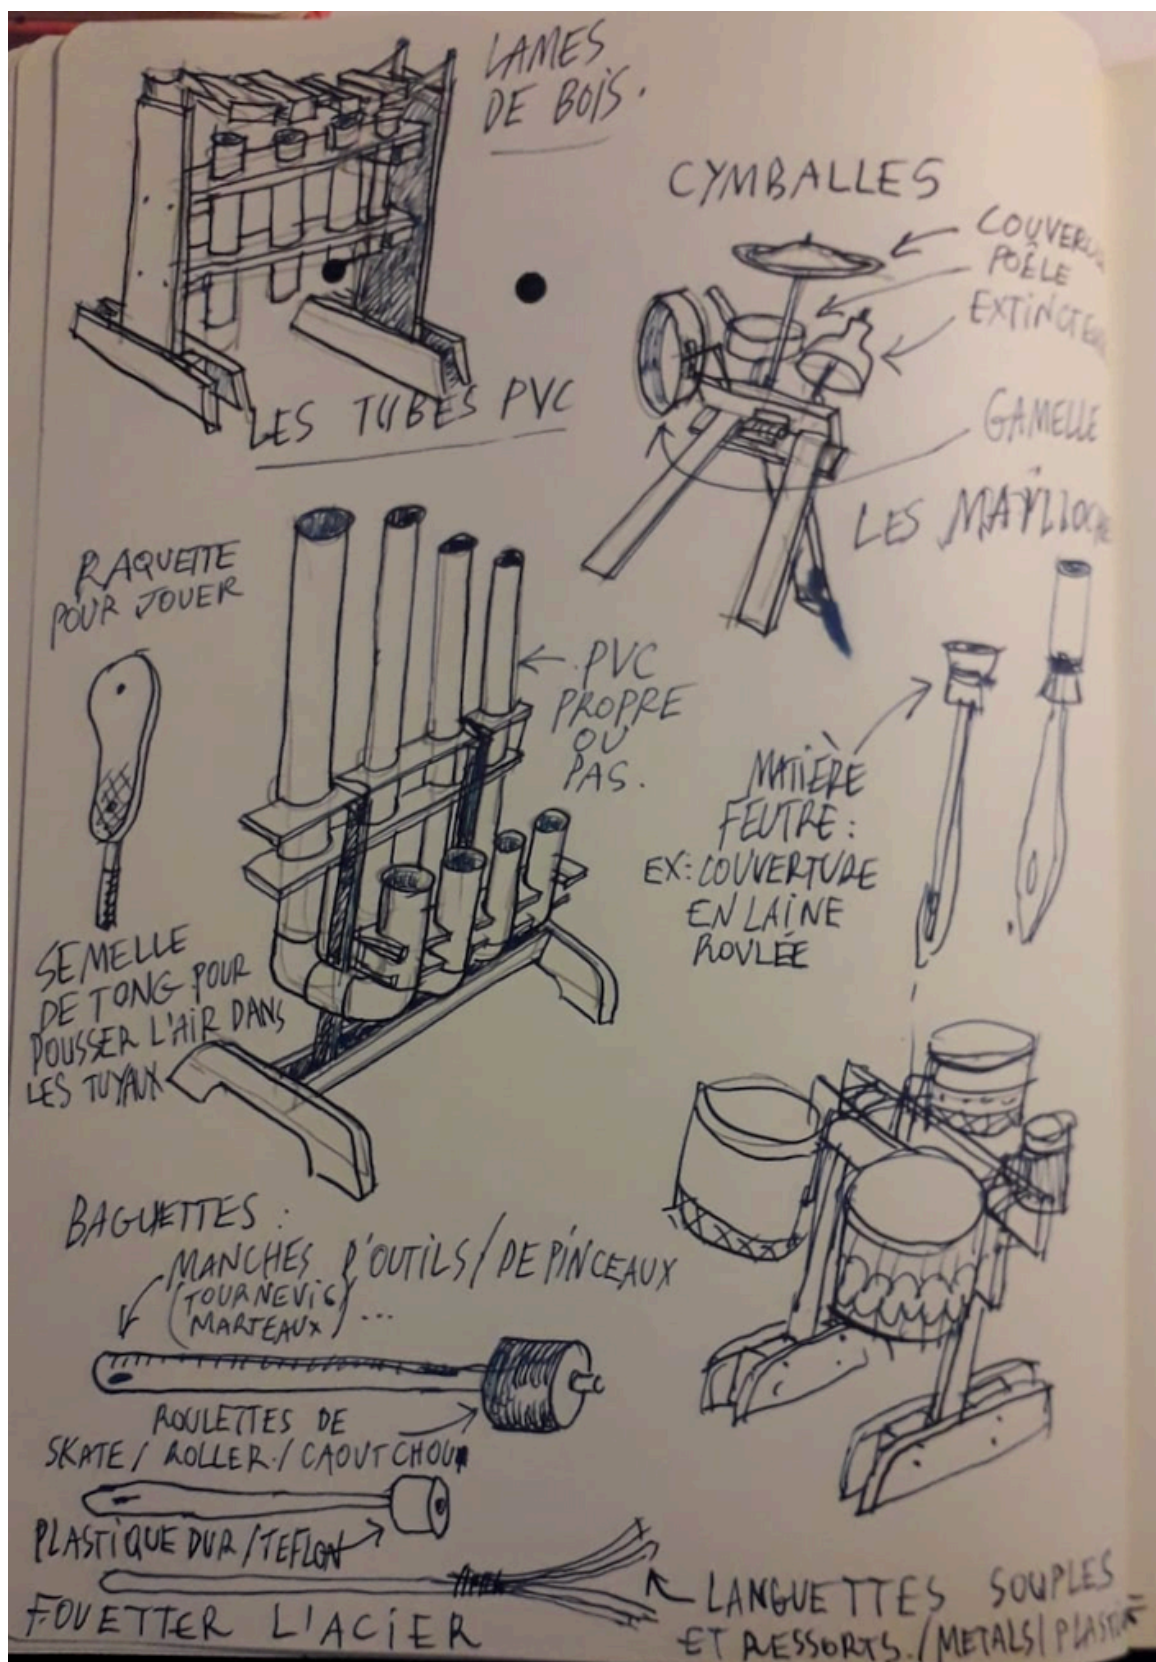 LAMES
DE BOIS.
CYMBALLES
POÊLE
GAMELLE
LES TUBES PVC
LES
RAQUETTE
POUR JOUER
PVC
PROPRE
OU
PAS.
MATIÈRE
FEUTRE :
EX: COUVERTURE
EN LAINE
ROULÉE
SEMELLE
DE TONG POUR
POUSSER L'AIR DANS
LES TUYAUX
BAGUETTES :
MANCHES D'OUTILS / DE PINCEAUX
(TOURNEVIS
MARTEAUX) ...
ROULETTES DE
SKATE / ROLLER / CAOUTCHOUC
PLASTIQUE DUR / TEFLON
FOUETTER L'ACIER
LANGUETTES SOUPLES
ET RESSORTS. / METALS /